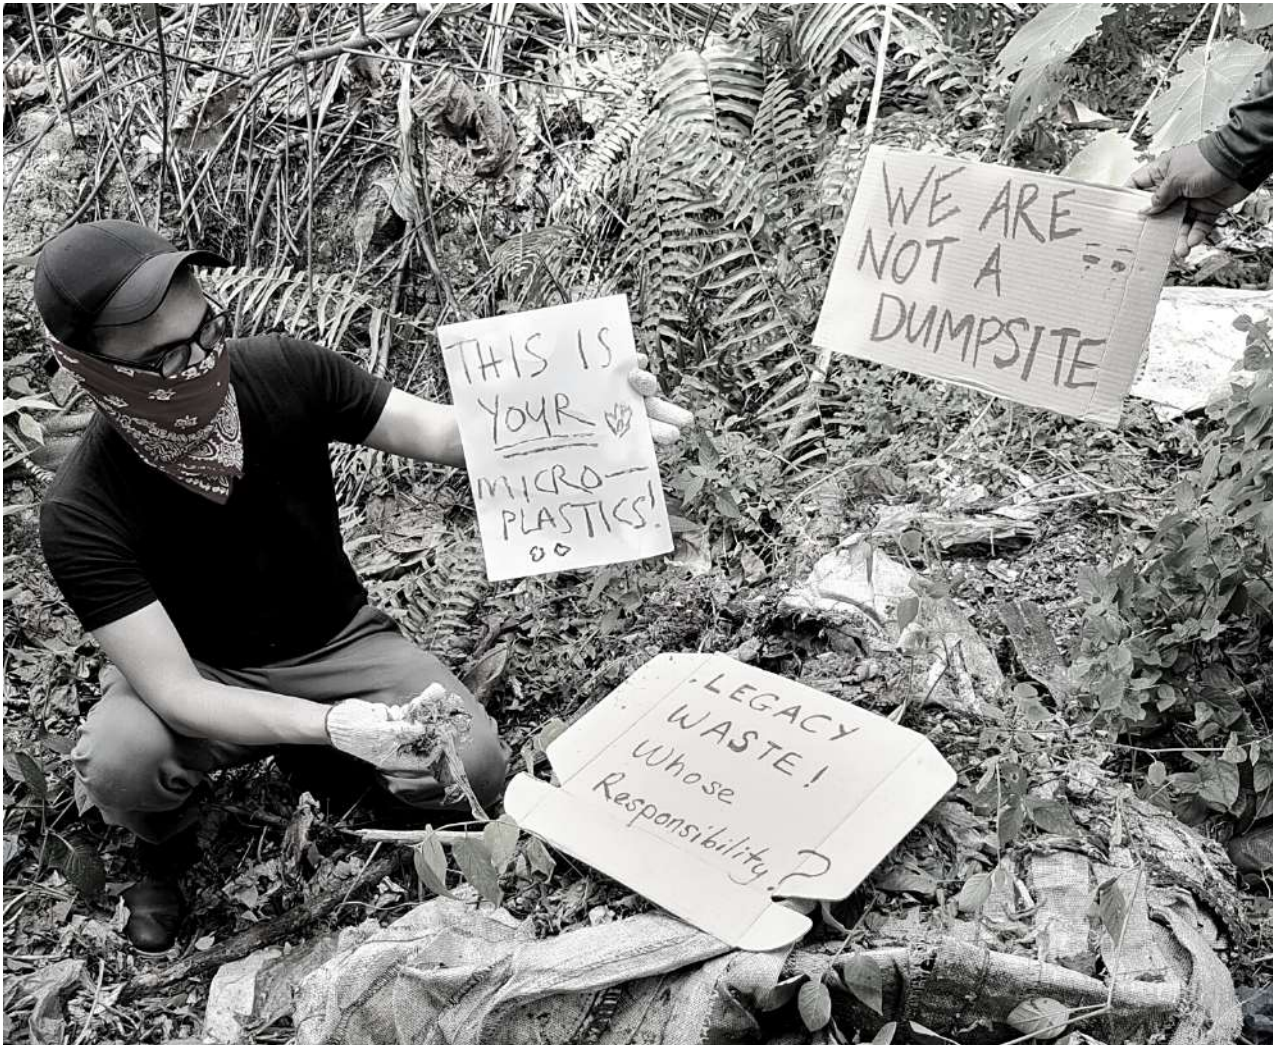 THIS IS
YOUR
MICRO-
PLASTICS!
WE ARE
NOT A
DUMPSITE
LEGACY
WASTE!
Whose
Responsibility?